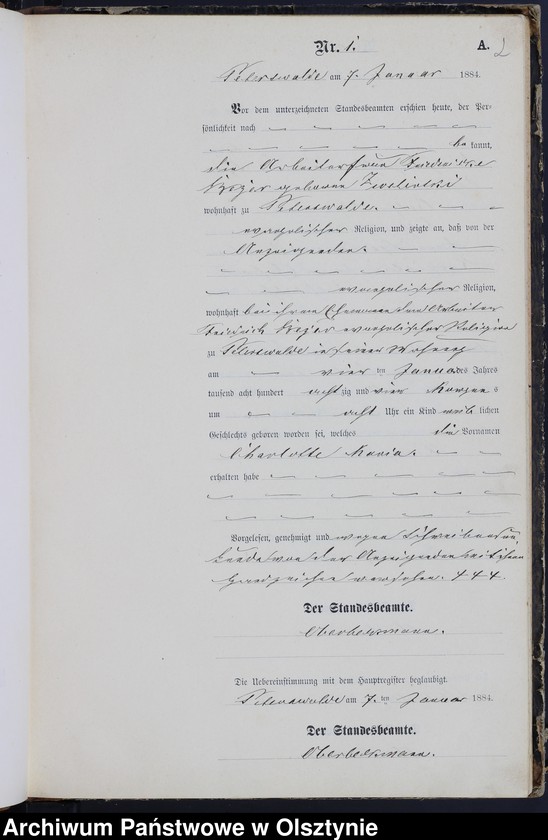 Nr. 1. A. 2
Peterswalde am 7. Januar 1884.
Vor dem unterzeichneten Standesbeamten erschien heute, der Per-
sönlichkeit nach
be kannt,
die Arbeiterfrau Friederike
geborene
wohnhaft zu Peterswalde
evangelischer Religion, und zeigte an, daß von der
Anzeigenden
evangelischer Religion,
wohnhaft bei ihrem Ehemann dem Arbeiter
Friedrich evangelischer Religion
zu Peterswalde in seiner Wohnung
am vier ten Januar des Jahres
tausend acht hundert acht zig und vier Morgens
um acht Uhr ein Kind weib lichen
Geschlechts geboren worden sei, welches die Vornamen
Charlotte Maria.
erhalten habe
Vorgelesen, genehmigt und wegen Schreibensun-
kunde von der Anzeigenden mit ihrem
Handzeichen versehen. +++.
Der Standesbeamte.
Oberbeckmann.
Die Uebereinstimmung mit dem Hauptregister beglaubigt.
Peterswalde am 7. ten Januar 1884.
Der Standesbeamte.
Oberbeckmann.
Archiwum Państwowe w Olsztynie